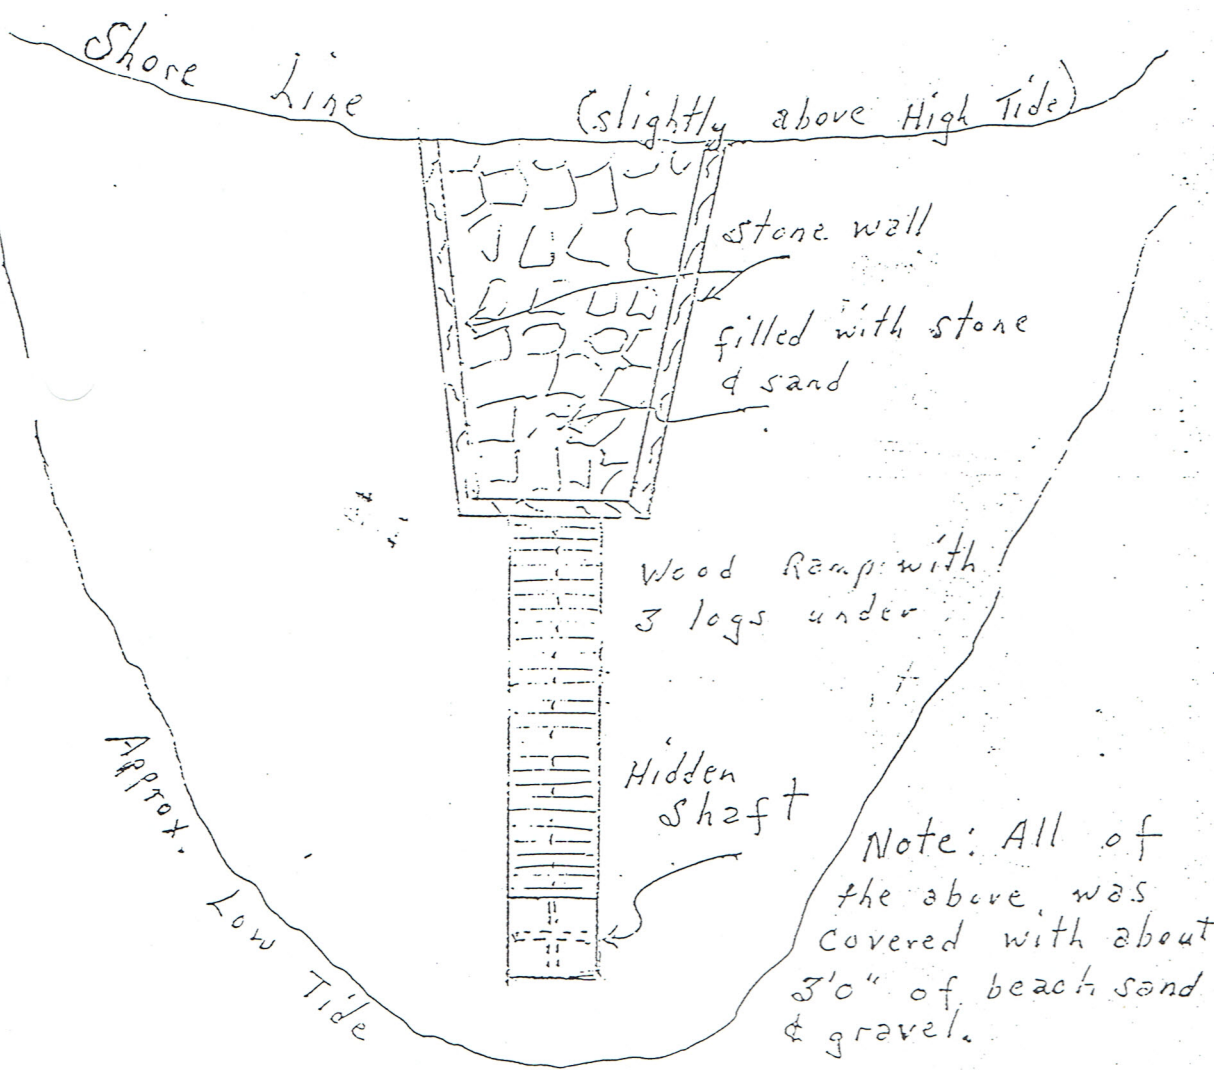 Shore Line (slightly above High Tide)
stone wall
filled with stone
& sand
Wood Ramp with
3 logs under
Hidden
shaft
Approx. Low Tide
Note: All of
the above was
covered with about
3'0" of beach sand
& gravel.